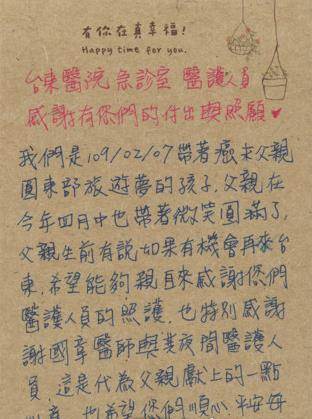 有你在真幸福!
Happy time for you.
台東醫院 急診室 醫護人員
感謝有你們的付出與照顧♥
我們是109/02/07帶著癌末父親
圓東部旅遊夢的孩子.父親在
今年四月中也帶著微笑圓滿了,
父親生前有說如果有機會再來台
東,希望能夠親自來感謝你們
醫護人員的照護,也特別感謝
謝國章醫師與葉夜間醫護人
員,這是代為父親獻上的一點
心意,也希望您們順心平安